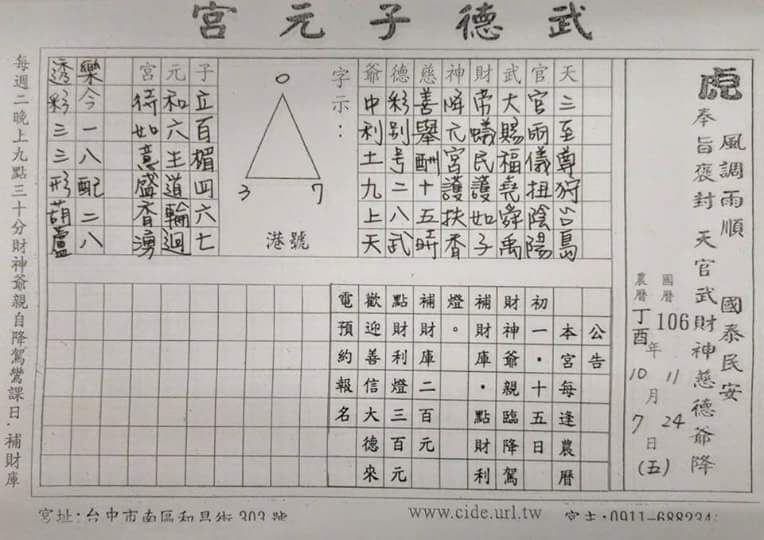 武德子元宮
虎
風調雨順 國泰民安
奉旨褒封 天官武財神慈德爺降
國曆 106 年 11 月 24 日 (五)
農曆 丁酉 年 10 月 7 日
天三至尊狩公島
官官兩儀扭陰陽
武大賜福堯舜禹
財帝蟻民護如子
神降元宮護扶香
慈善舉酬十五時
德彩別号二八武
爺中利土九上天
字示：
0
3 7
港號
子立百楣四六七
元和六主道輪迴
宮待如意盛香湧
樂今一八配二八
透彩三三形葫蘆
公告
本宮每逢農曆
初一．十五日
財神爺親臨降駕
補財庫．點財利
燈。
補財庫二百元
點財利燈三百元
歡迎善信大德來
電預約報名
每週二晚上九點三十分財神爺親自降駕鸞課日．補財庫
宮址:台中市南區和昌街303號
www.cide.url.tw
宮主:0911-688234